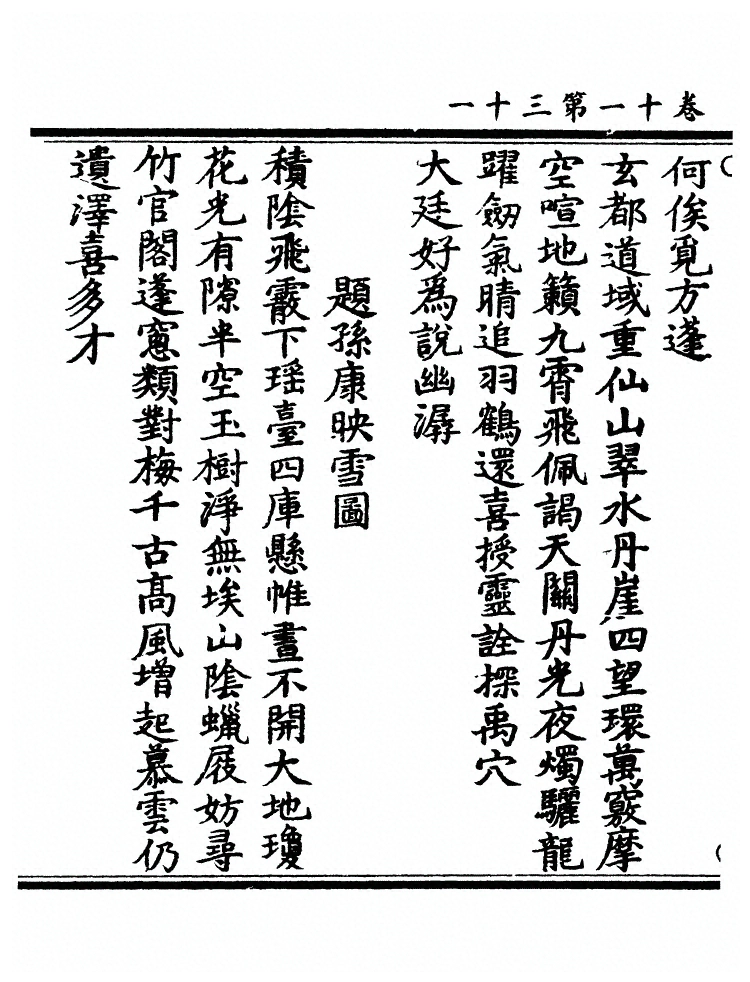 卷十一第三十一
何俟覓方蓬
玄都道域重仙山翠水丹崖四望環萬竅摩
空喧地籟九霄飛佩謁天關丹光夜燭驪龍
躍劒氣晴追羽鶴還喜授靈詮探禹穴
大廷好爲說幽潺
題孫康映雪圖
積陰飛霰下瑶臺四庫懸帷晝不開大地瓊
花光有隙半空玉樹淨無埃山陰蠟屐妨尋
竹官閣蓬窻類對梅千古髙風增起慕雲仍
遺澤喜多才